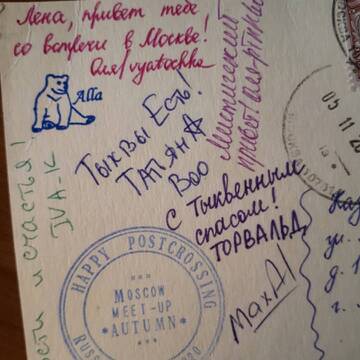 Лена, привет тебе
со встречи в Москве!
Оля/vyatochka
Alla
Тыквы Есть!
ТАТЬЯНА
Boo
Мистический
привет!
С Тыквенным
спасом!
ТОРВАЛЬД
MaxAl
и счастья!
JVA-K
HAPPY POSTCROSSING
MOSCOW
MEET-UP
*AUTUMN*
05 11
ул.
д. 1